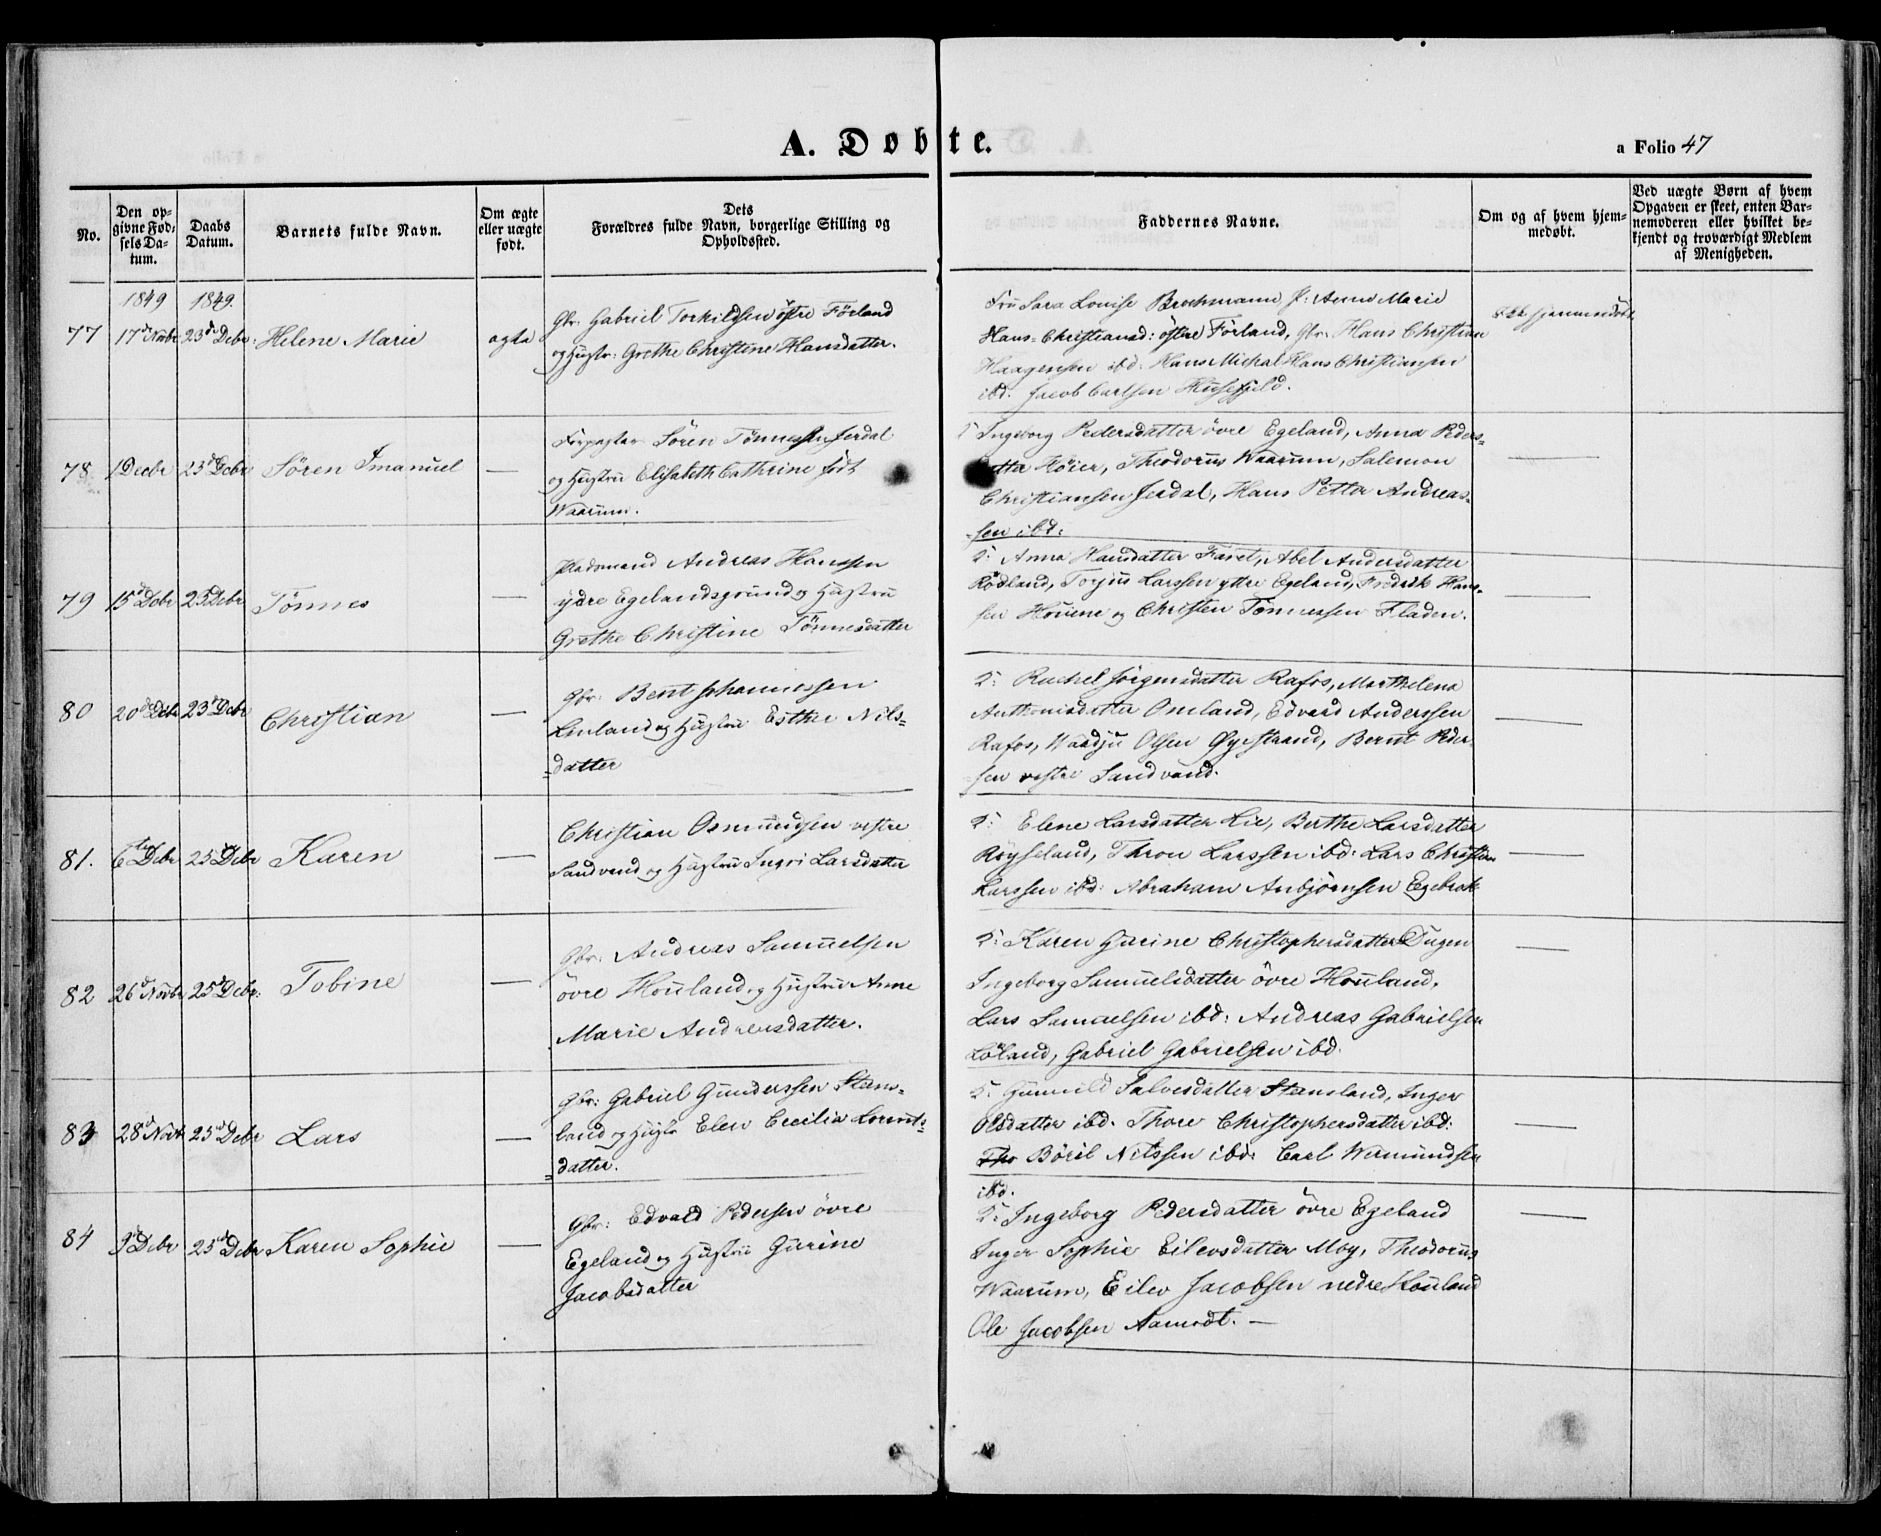 A. Døbte.
a Folio 47
No.
Den op-
givne Fød-
sels Da-
tum.
Daabs
Datum.
Barnets fulde Navn.
Om ægte
eller uægte
født.
Dets
Forældres fulde Navn, borgerlige Stilling og
Opholdssted.
Faddernes Navne.
Om og af hvem hjem-
medøbt.
Ved uægte Børn af hvem
Opgaven er skeet, enten Bar-
nemoderen eller hvilket be-
kjendt og troværdigt Medlem
af Menigheden.
1849 1849.
77 17de Novbr 23de Debr. Helene Marie ægte
Gbr: Gabriel Torkildsen østre Förland
og Hustr: Grethe Christine Hansdatter.
Fru Sara Louise Brochmann, P: Anne Marie
Hans-Christiansd: østre Förland, Gbr. Hans Christian
Haagensen ibd. Hans Michal Hans Christiansen
ibd. Jacob Carlsen Husefjeld.
Ikke hjemmedøbt
78 1 Decbr 23de Debr Søren Imanuel —
Forpagter Søren Tönnessen Jerdal
og Hustru Elisabeth Cathrine født
Waarum.
Ingeborg Pedersdatter övre Egeland, Anna Peders-
datter Høier, Theodorus Waarum, Salemon
Christiansen Jerdal, Hans Petter Andreas-
sen ibd:
—
79 15de Debr 23 Debr Tönnes —
Pladsmand Andreas Hanssen
ydre Egelandsgrund og Hustru
Grethe Christine Tönnesdatter
2: Anna Hansdatter Faret, Abel Andersdatter
Rødland, Torjus Larssen ytre Egeland, Fredrik Hans-
sen Houene og Christen Tönnessen Fladen.
—
80 20de Debr 23de Debr Christian —
Gbr: Bent Johannessen
Linland og Hustru Esther Nils-
datter
2: Rachel Jörgensdatter Rafos, Marthelena
Anthonisdatter Omland, Edvard Anderssen
Rafos, Olsen Øyestrand, Bernt Peder-
sen vestre Sandvand.
—
81. 6te Debr 25de Debr Karen —
Christian Osmundsen vestre
Sandvand og Hustru Ingri Larsdatter
2: Elene Larsdatter Lie, Berthe Larsdatter
Röyseland, Thron Larssen ibd: Lars Christian
Larssen ibd: Abraham Anbjörnsen Egebrok
—
82 26de Novbr 25de Debr. Tobine —
Gbr: Andreas Samuelsen
övre Houland og Hustru Anne
Marie Andreasdatter.
2: Karen Gurine Christophersdatter Dugen
Ingeborg Samuelsdatter övre Houland,
Lars Samuelsen ibd: Andreas Gabrielsen
Löland, Gabriel Gabrielsen ibd.
—
83 28de Novbr 25de Debr Lars —
Gbr: Gabriel Gunderssen Stens-
land og Hustr Elen Cecilia Lorents-
datter.
2: Gunnild Salvesdatter Stensland, Inger
Olsdatter ibd. Thore Christophersdatter ibd:
Tho Böril Nilssen ibd: Carl Wermundsen
ibd.
—
84 9de Debr 25de Debr Karen Sophie —
Gbr: Edvard Pedersen övre
Egeland og Hustru Gurine
Jacobsdatter
2: Ingeborg Pedersdatter övre Egeland
Inger Sophie Eilevsdatter Moy, Theodorus
Waarum, Eilev Jacobsen nedre Houland
Ole Jacobsen Aamodt. —
—